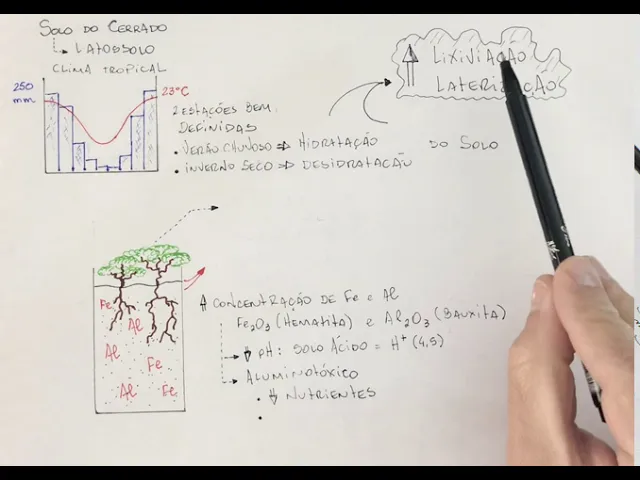 SOLO DO CERRADO
LATOSSOLO
CLIMA TROPICAL
250
mm
23°C
2 ESTAÇÕES BEM
DEFINIDAS
• VERÃO CHUVOSO ⇒ HIDRATAÇÃO
• INVERNO SECO ⇒ DESIDRATAÇÃO
DO SOLO
LIXIVIAÇÃO
LATERIZAÇÃO
Fe
Al
Al
Fe
Al
Fe
⇑ CONCENTRAÇÃO DE Fe e Al
Fe₂O₃ (HEMATITA) e Al₂O₃ (BAUXITA)
⇓ pH: SOLO ÁCIDO = H⁺ (4,5)
ALUMINOTÓXICO
• ⇓ NUTRIENTES
•